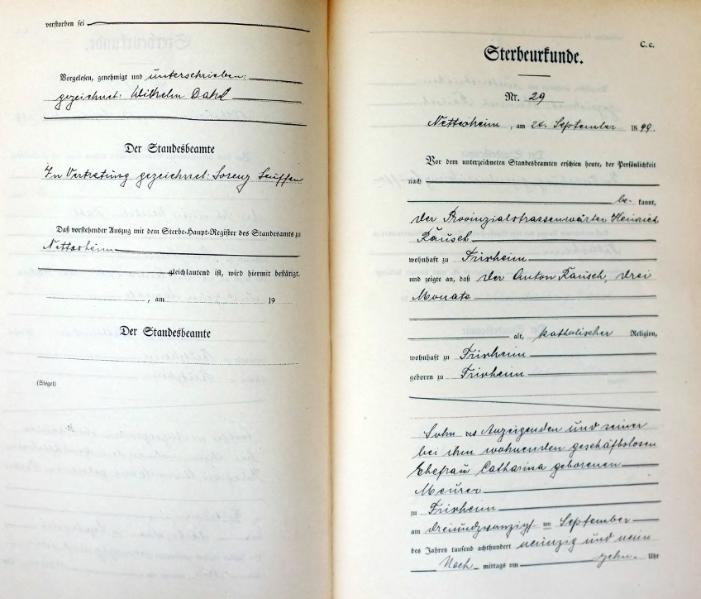 verstorben sei
Vorgelesen, genehmigt und unterschrieben.
gezeichnet: Wilhelm
Der Standesbeamte
In Vertretung gezeichnet: Lorenz
Daß vorstehender Auszug mit dem Sterbe-Haupt-Register des Standesamts zu
Nettersheim
gleichlautend ist, wird hiermit bestätigt.
, am 19
Der Standesbeamte
(Siegel)
C. c.
Sterbeurkunde.
Nr. 29
Nettersheim, am 24. September 1899.
Vor dem unterzeichneten Standesbeamten erschien heute, der Persönlichkeit
nach
be kannt,
der Provinzialstrassenwärter Heinrich
Räusch
wohnhaft zu Frirheim
und zeigte an, daß der Anton Räusch, drei
Monate
alt, katholischer Religion,
wohnhaft zu Frirheim
geboren zu Frirheim
Sohn des Anzeigenden und seiner
bei ihm wohnenden geschäftslosen
Ehefrau Catharina geborenen
Meurer
zu Frirheim
am dreiundzwanzigst en September
des Jahres tausend achthundert neunzig und neun
Nach mittags um zehn Uhr